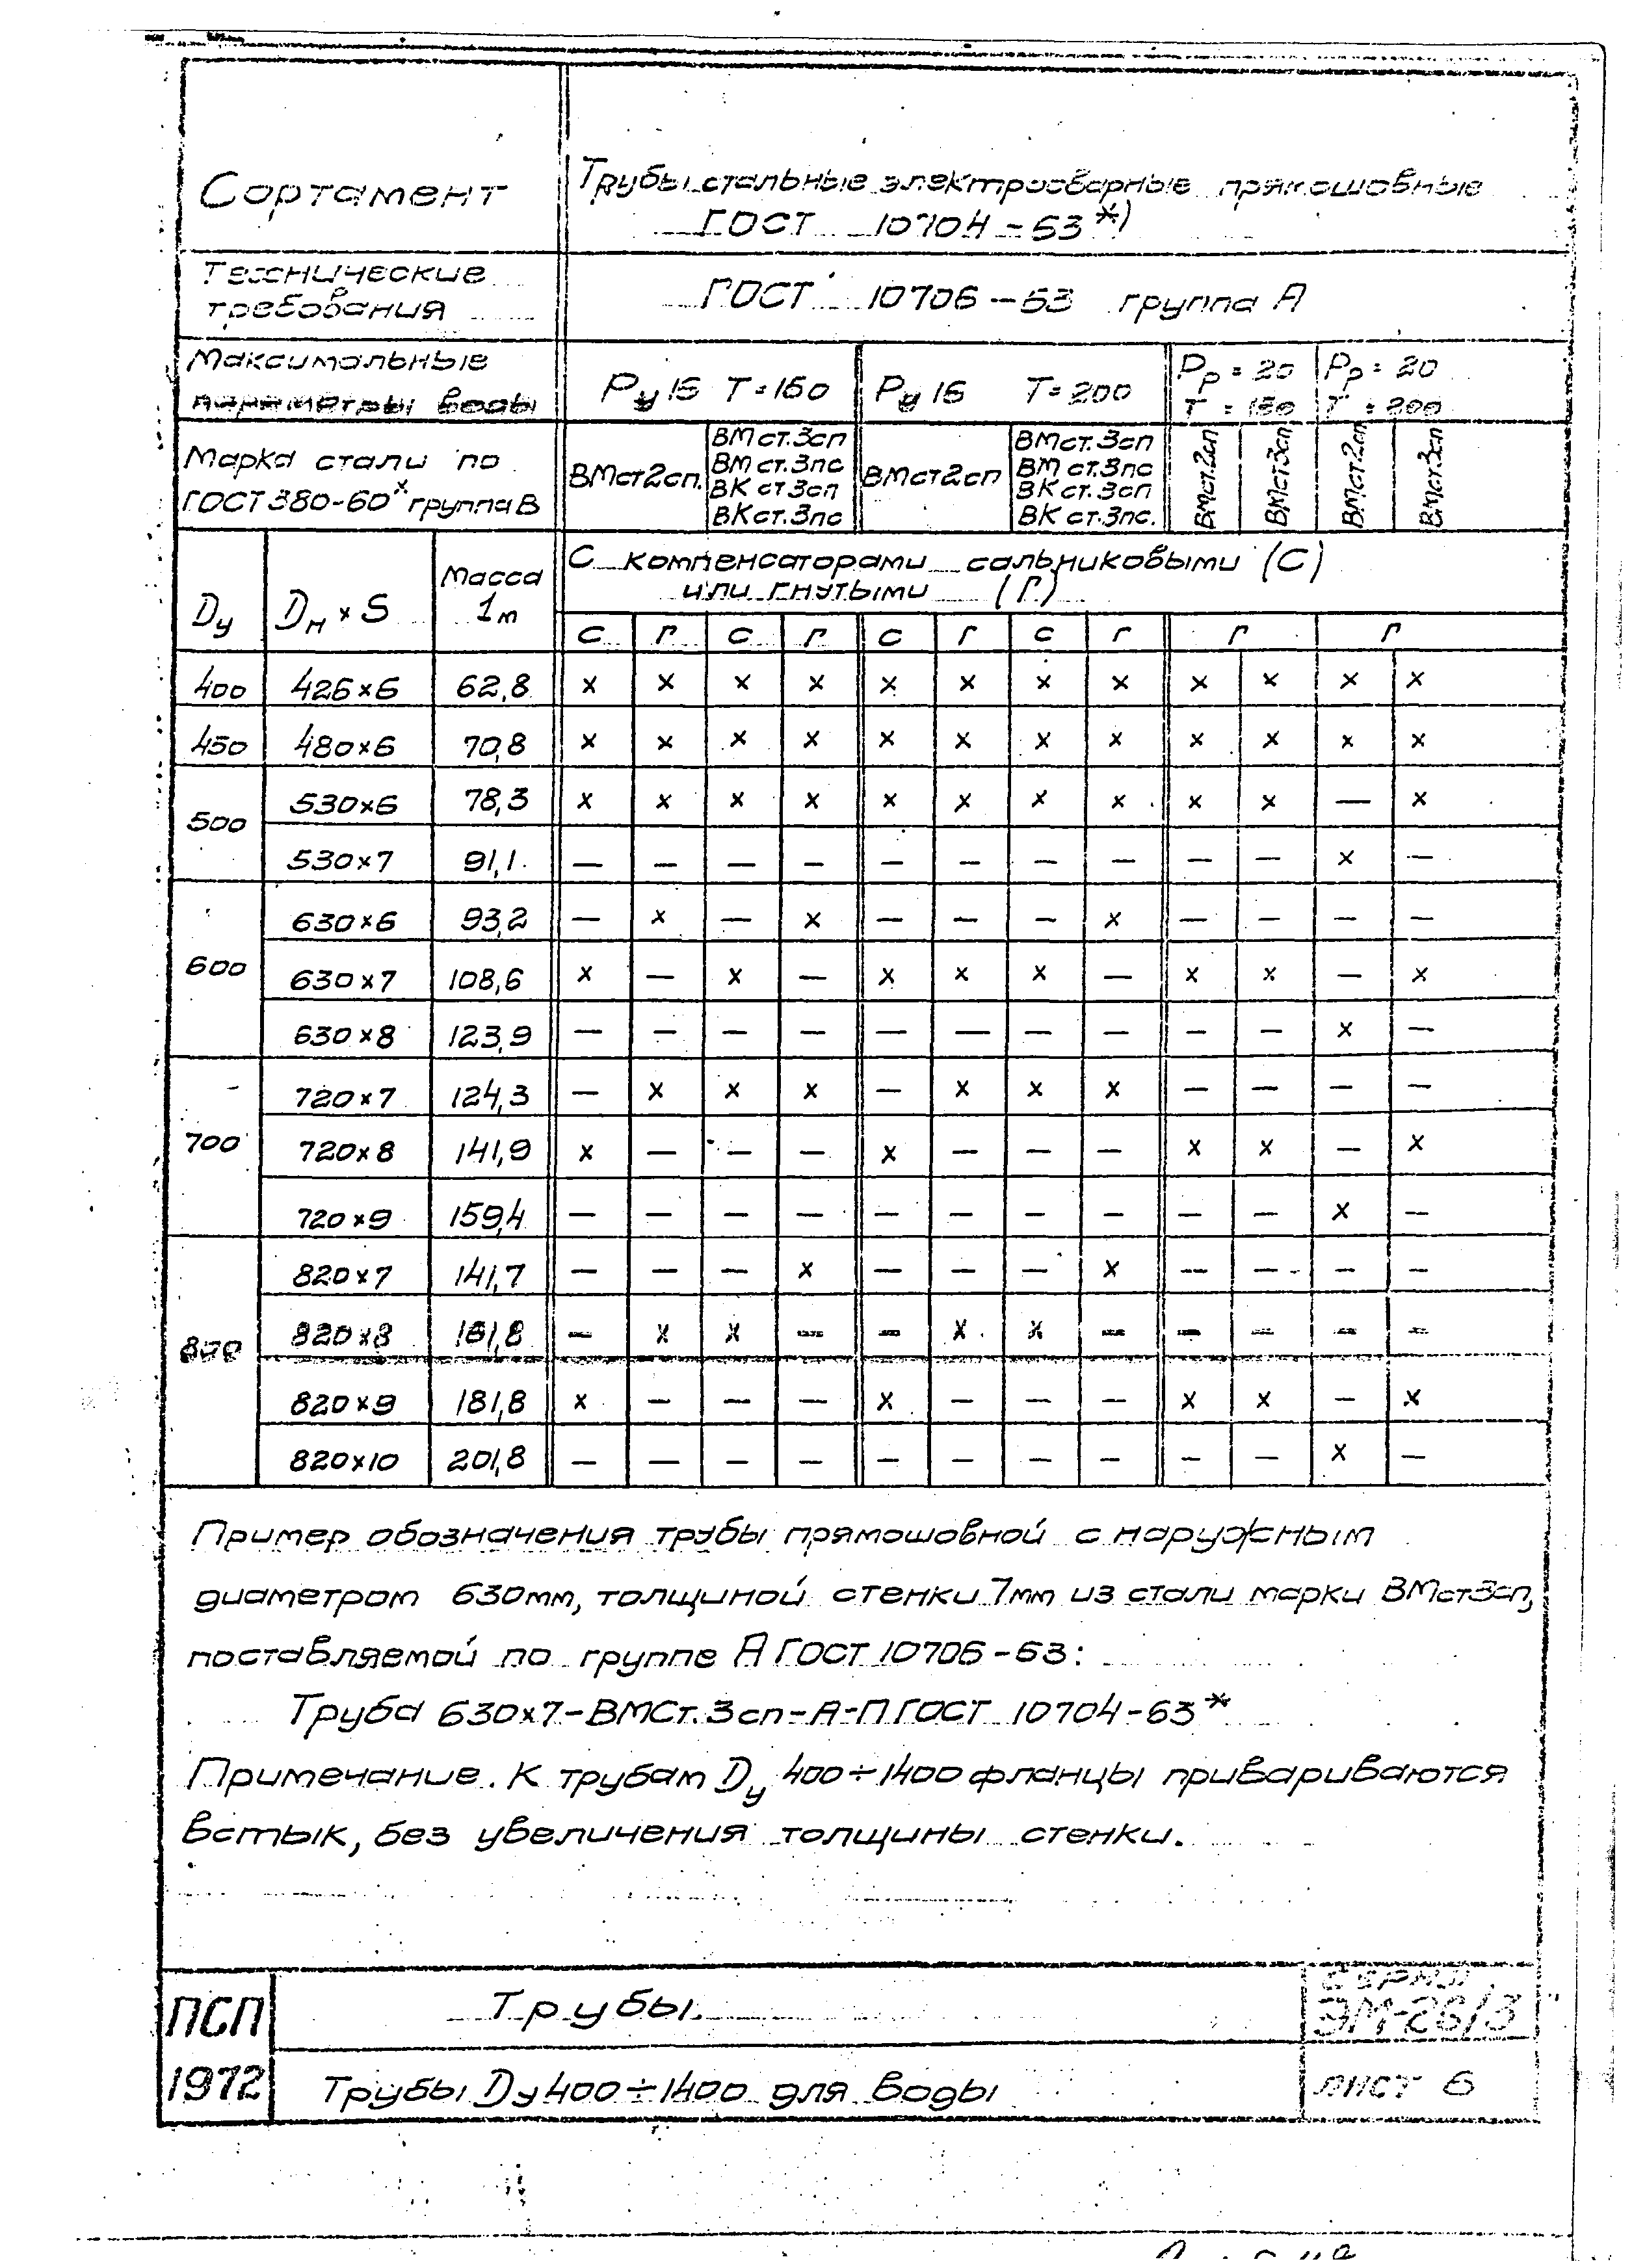 Сортамент
Трубы стальные электросварные прямошовные
ГОСТ 10704-63*)
Технические
требования
ГОСТ 10706-63 группа А
Максимальные
параметры воды
Ру 16 Т=150
Ру 16 Т=200
Рр=20
Т=150
Рр=20
Т=200
Марка стали по
ГОСТ 380-60* группа В
ВМст2сп.
ВМст.3сп
ВМст.3пс
ВКст3сп
ВКст.3пс
ВМст2сп
ВМст.3сп
ВМст.3пс
ВКст.3сп
ВКст.3пс.
ВМст.2сп
ВМст3сп
ВМст2сп
ВМст3сп
Ду
Дн×S
Масса
1м
С компенсаторами сальниковыми (С)
или гнутыми (Г)
С Г С Г С Г С Г Г Г
400 426×6 62,8 × × × × × × × × × × × ×
450 480×6 70,8 × × × × × × × × × × × ×
500
530×6 78,3 × × × × × × × × × × — ×
530×7 91,1 — — — — — — — — — — × —
600
630×6 93,2 — × — × — — — × — — — —
630×7 108,6 × — × — × × × — × × — ×
630×8 123,9 — — — — — — — — — — × —
700
720×7 124,3 — × × × — × × × — — — —
720×8 141,9 × — — — × — — — × × — ×
720×9 159,4 — — — — — — — — — — × —
800
820×7 141,7 — — — × — — — × — — — —
820×8 161,8 — × × — — × × — — — — —
820×9 181,8 × — — — × — — — × × — ×
820×10 201,8 — — — — — — — — — — × —
Пример обозначения трубы прямошовной с наружным
диаметром 630мм, толщиной стенки 7мм из стали марки ВМст3сп,
поставляемой по группе А ГОСТ 10706-63:
Труба 630×7-ВМСт.3сп-А-П ГОСТ 10704-63*
Примечание. К трубам Ду 400÷1400 фланцы привариваются
встык, без увеличения толщины стенки.
ПСП
1972
Трубы.
Трубы Ду 400÷1400 для воды
Серия
ЭМ-26/3
лист 6